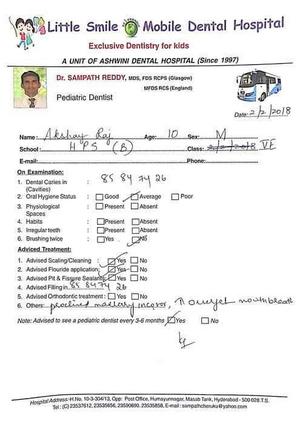 Little Smile Mobile Dental Hospital
Exclusive Dentistry for kids
A UNIT OF ASHWINI DENTAL HOSPITAL (Since 1997)
Dr. SAMPATH REDDY, MDS, FDS RCPS (Glasgow)
MFDS RCS (England)
Pediatric Dentist
Date: 2/2/2018
Name: Akshay Raj Age: 10 Sex: M
School: HPS (B) Class: 2/2/2018 VI
E-mail: Phone:
On Examination:
1. Dental Caries in (Cavities) : 85 84 74 26
2. Oral Hygiene Status : Good Average Poor
3. Physiological Spaces : Present Absent
4. Habits : Present Absent
5. Irregular teeth : Present Absent
6. Brushing twice : Yes No
Adviced Treatment:
1. Advised Scaling/Cleaning : Yes No
2. Advised Flouride application : Yes No
3. Advised Pit & Fissure Sealant : Yes No
4. Advised Filling in 85 84 74 26
5. Advised Orthodontic treatment : Yes No
6. Other: proclined maxillary mouth breath
Note: Advised to see a pediatric dentist every 3-6 months Yes No
Hospital Address: H.No. 10-3-304/13, Opp: Post Office, Humayunnagar, Masab Tank, Hyderabad - 500 028 T.S.
Tel: (C) 23537612, 23535656, 23590690, 23535858. E-mail: sampathcheruku@yahoo.com